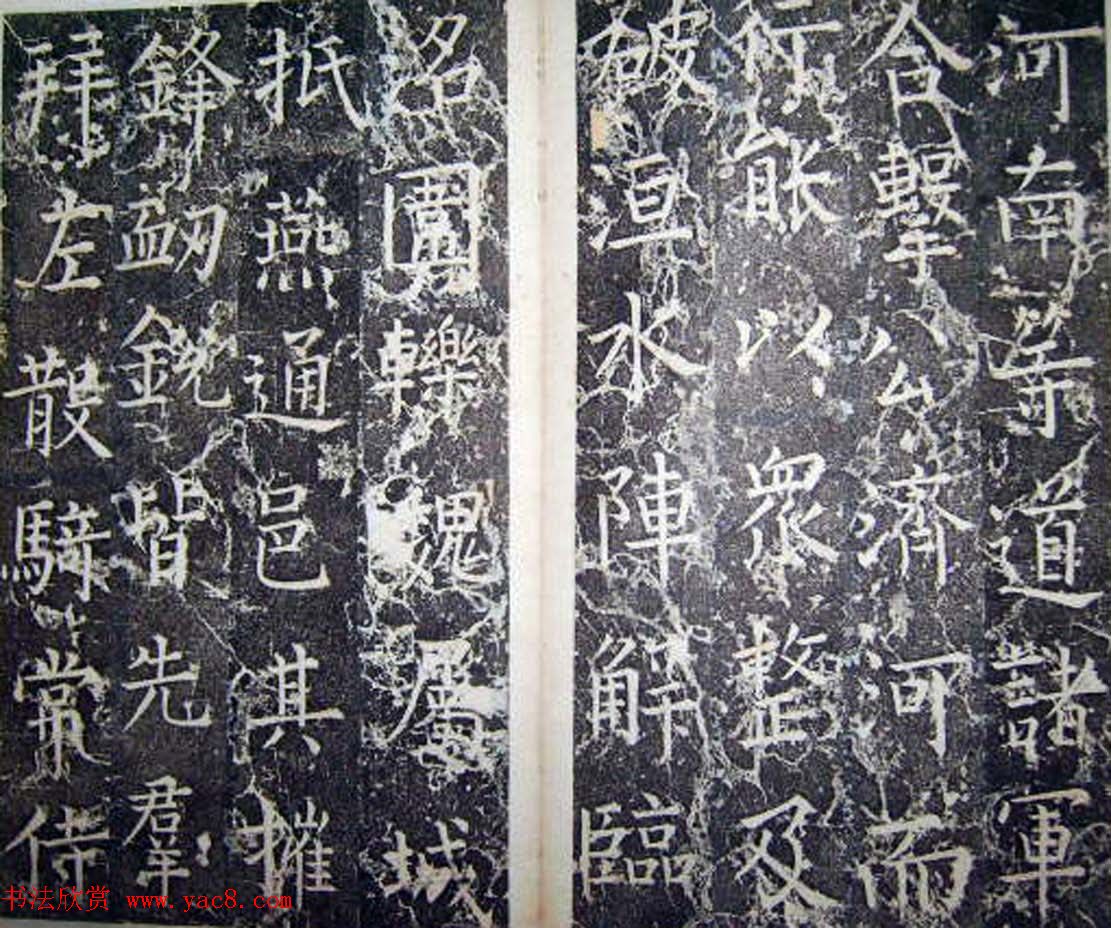 河南等道諸軍
合擊公濟河而
行以衆整及
破洹水陣解臨
洺圍轢魏屬城
抵燕通邑其摧
鋒衂銳皆先羣
拜左散騎常侍
书法欣赏 www.yac8.com